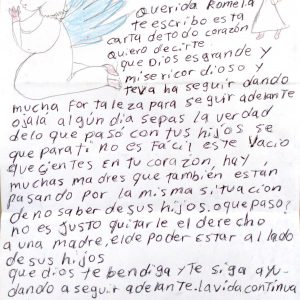 Querida Romela
te escribo esta
carta de todo corazón
Quiero decirte
que Dios es grande y
misericordioso y
te va ha seguir dando
mucha fortaleza para seguir adelante
ojalá algún día sepas la verdad
de lo que pasó con tus hijos se
que para ti no es fácil este vacío
que cientes en tu corazón, hay
muchas madres que también están
pasando por la misma situación
de no saber de sus hijos. o que paso?
no es justo quitarle el derecho
a una madre, el de poder estar al lado
de sus hijos
que dios te bendiga y te siga ayu-
dando a seguir adelante. la vida continua